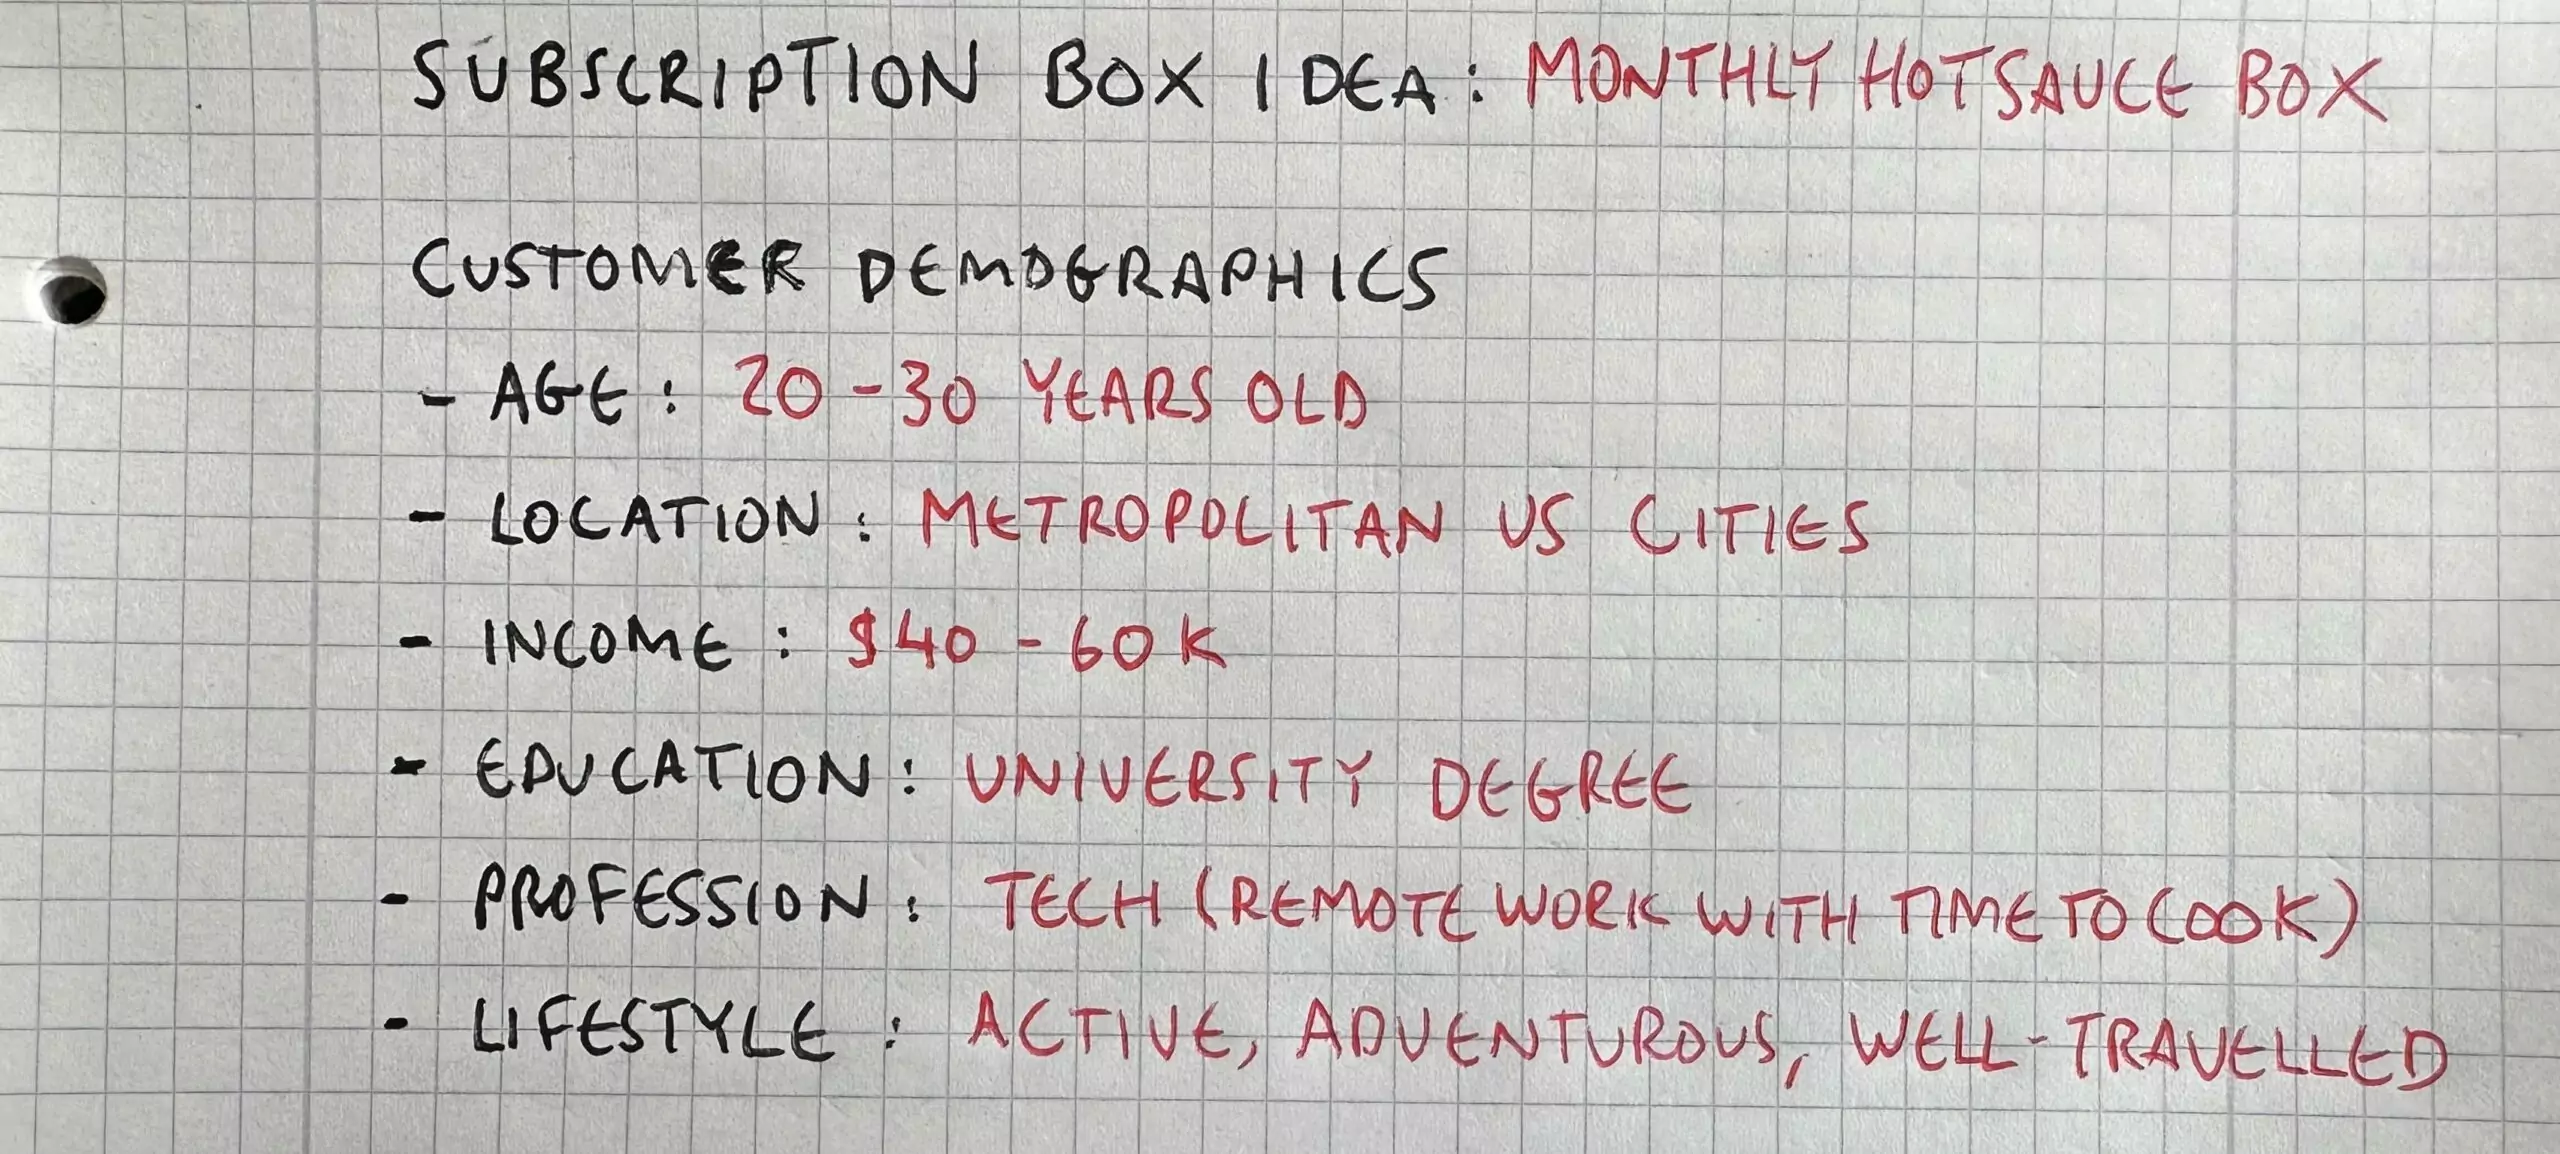 SUBSCRIPTION BOX IDEA: MONTHLY HOT SAUCE BOX
CUSTOMER DEMOGRAPHICS
- AGE: 20-30 YEARS OLD
- LOCATION: METROPOLITAN US CITIES
- INCOME: $40-60K
- EDUCATION: UNIVERSITY DEGREE
- PROFESSION: TECH (REMOTE WORK WITH TIME TO COOK)
- LIFESTYLE: ACTIVE, ADVENTUROUS, WELL-TRAVELLED